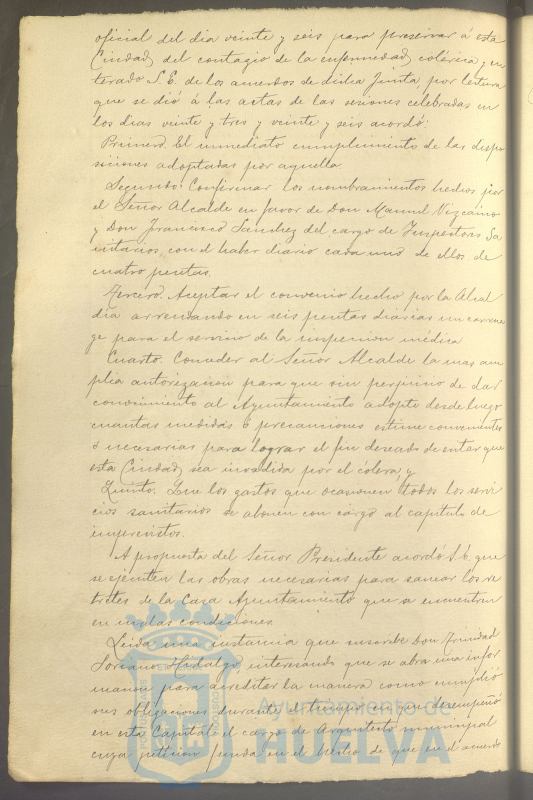 oficial del dia veinte y seis para preservar á esta
Ciudad del contagio de la enfermedad colérica y en
terado S. E. de los acuerdos de dicha Junta, por lectura
que se dió á las actas de las sesiones celebradas en
los dias veinte y tres y veinte y seis acordó:
Primero. El inmediato cumplimiento de las dispo
siciones adoptadas por aquella.
Segundo: Confirmar los nombramientos hechos por
el Señor Alcalde en favor de Don Manuel Vizcaino
y Don Francisco Sanchez del cargo de Inspectores Sa
nitarios, con el haber diario cada uno de ellos de
cuatro pesetas.
Tercero. Aceptar el convenio hecho por la Alcal
dia arrendando en seis pesetas diarias un carrua
ge para el servicio de la inspeccion médica
Cuarto. Conceder al Señor Alcalde la mas am
plia autorizacion para que sin perjuicio de dar
conocimiento al Ayuntamiento adopte desde luego
cuantas medidas ó precauciones estime convenientes
ó necesarias para lograr el fin deseado de evitar que
esta Ciudad sea invadida por el colera, y
Quinto. Que los gastos que ocasionen todos los servi
cios sanitarios se abonen con cargo al capitulo de
imprevistos.
A propuesta del Señor Presidente acordó S. E. que
se ejecuten las obras necesarias para sanear los re
tretes de la Casa Ayuntamiento que se encuentran
en malas condiciones.
Leida una instancia que suscribe Don Trinidad
Soriano Hidalgo interesando que se abra una infor
macion para acreditar la manera como cumplió
sus obligaciones durante el tiempo en que desempeñó
en esta Capital el cargo de Arquitecto municipal
cuya peticion funda en el hecho de que en el acuerdo
Ayuntamiento de
HUELVA